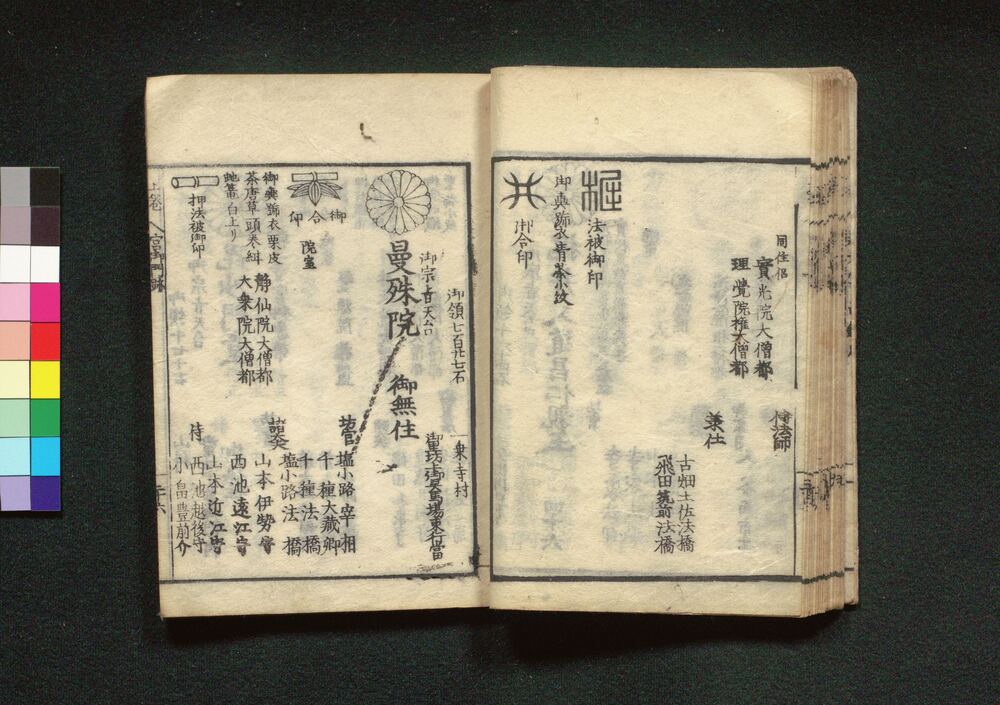 同住侶
寶光院大僧都
理覺院権大僧都
侍法師
兼仕
古畑土佐法橋
飛田筑前法橋
法被御印
御輿舁衣青茶小紋
御合印
一乗寺村
御領七百廿七石
御宗旨天台
曼殊院
御無住
御合印
院室
坊官
塩小路宰相
千種大蔵卿
千種法橋
塩小路法橋
諸太夫
山本伊勢守
西池遠江守
山本近江守
静仙院大僧都
大衆院大僧都
御輿舁衣栗皮
茶唐草頭巻緋
地篭白上り
押法被御印
侍
西池越後守
小畠豊前介
宮御門跡